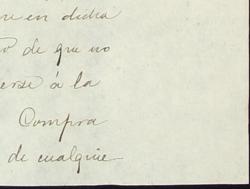 en dicha
de que no
erse á la
Compra
de cualquie